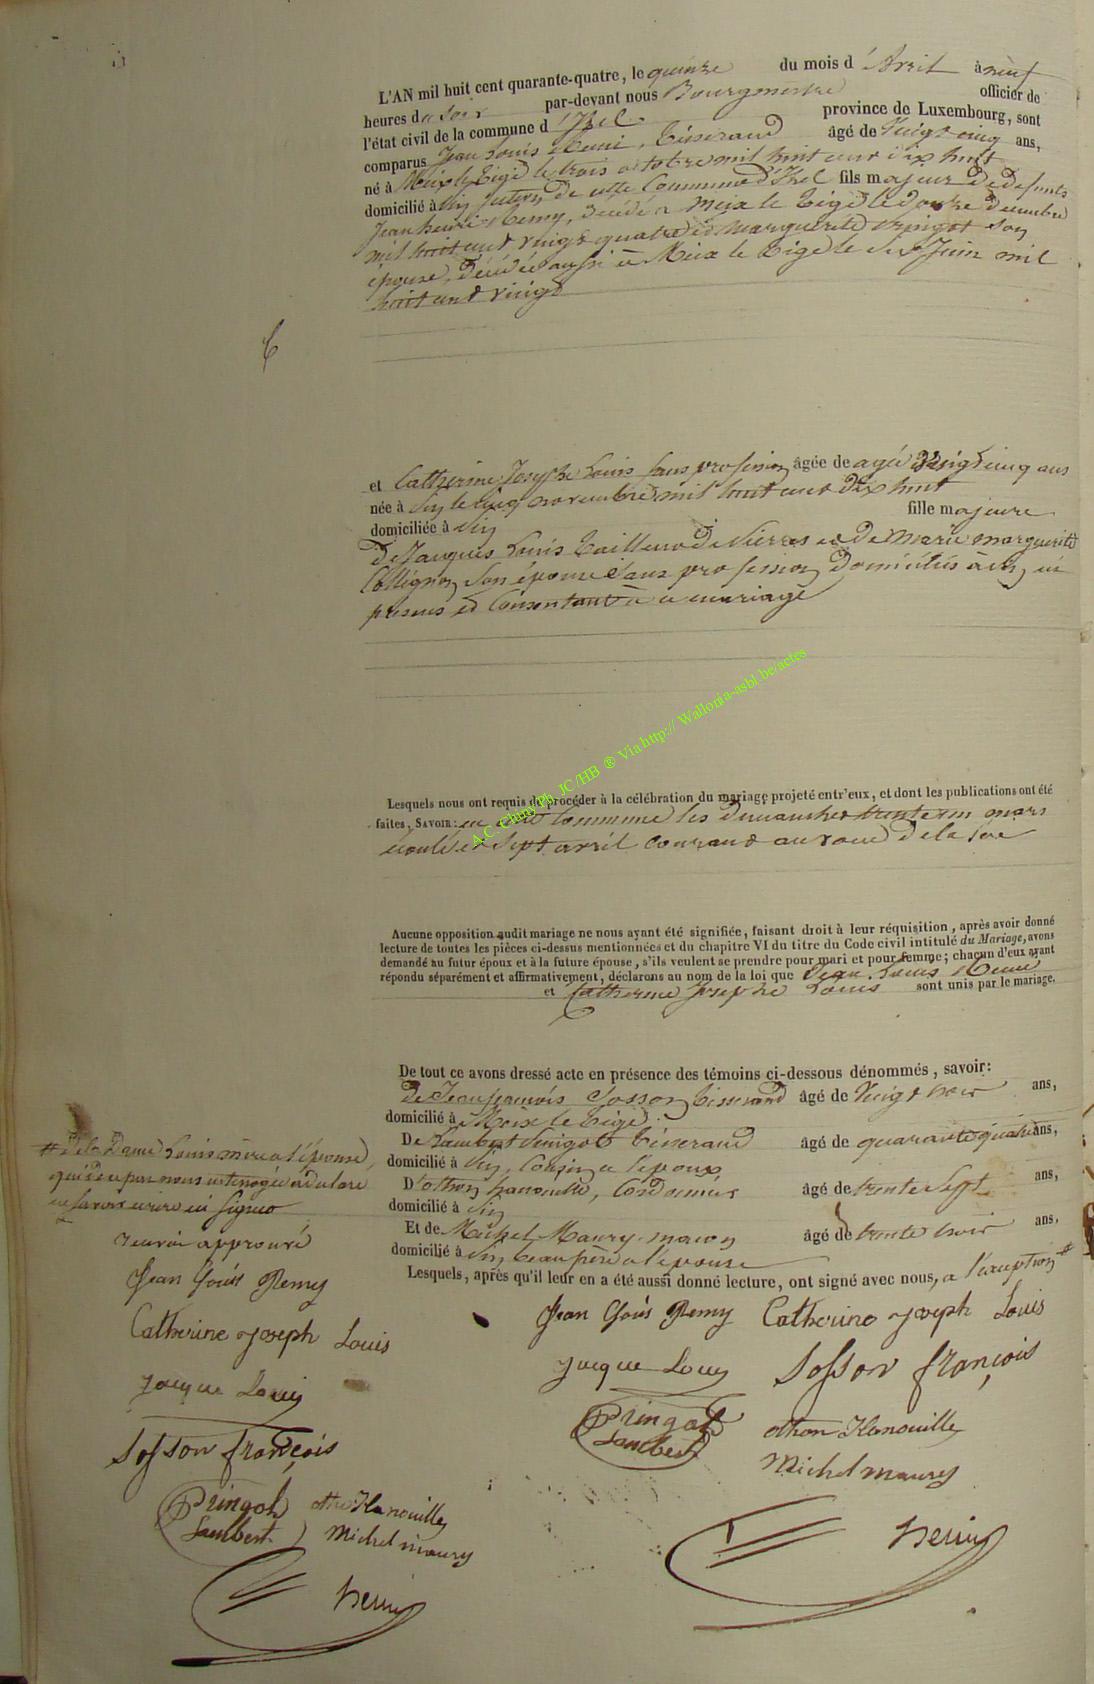 L'AN mil huit cent quarante-quatre, le quinze du mois d'Avril à neuf
heures du soir par-devant nous Bourgmestre officier de
l'état civil de la commune d'Izel province de Luxembourg, sont
comparus Jean Louis Remi, tisserand âgé de vingt cinq ans,
né à Meix le Tige le trois octobre mil huit cent dix huit
domicilié à Pin de cette Commune d'Izel fils majeur de defunts
Jean henri Remy, décédé à Meix le Tige le douze decembre
mil huit cent vingt quatre et marguerite Pringot son
épouse, décédée aussi à Meix le Tige le six Juin mil
huit cent vingt
et Catherine Josephe Louis sans profession âgée de agée vingt cinq ans
née à Pin le cinq novembre mil huit cent dix huit
domiciliée à Pin fille majeure
de Jacques Louis Tailleur de Pierres et de marie marguerite
Collignon son épouse sans profession domiciliés à Pin, ici
presens et Consentant à ce mariage
A.C. Chiny Ph. JC/HB ® Via http:// Wallonia-asbl.be/actes
Lesquels nous ont requis de procéder à la célébration du mariage projeté entr'eux, et dont les publications ont été
faites, SAVOIR: en cette Commune les dimanches trente un mars
écoulé et sept avril courant au vœu de la loi
Aucune opposition audit mariage ne nous ayant été signifiée, faisant droit à leur réquisition, après avoir donné
lecture de toutes les pièces ci-dessus mentionnées et du chapitre VI du titre du Code civil intitulé du Mariage, avons
demandé au futur époux et à la future épouse, s'ils veulent se prendre pour mari et pour femme; chacun d'eux ayant
répondu séparément et affirmativement, déclarons au nom de la loi que Jean Louis Remi
et Catherine Josephe Louis sont unis par le mariage.
De tout ce avons dressé acte en présence des témoins ci-dessous dénommés, savoir:
De Jean françois Sosson, tisserand âgé de vingt trois ans,
domicilié à Meix le Tige
De Lambert Pringot tisserand âgé de quarante quatre ans,
domicilié à Pin, Cousin a l'époux
D'othon hanouille, Cordonnier âgé de trente sept ans,
domicilié à Pin
Et de Michel Maury, maçon âgé de trente trois ans,
domicilié à Pin beau frère a l'épouse
Lesquels, après qu'il leur en a été aussi donné lecture, ont signé avec nous, a l'exception #
Jean Louis Remy Catherine Joseph Louis
Jacque Louis Sosson françois
Pringot Lambert othon Hanouille
Michel maury
# de la Dame Louis mère a l'épouse,
qui de ce par nous interrogée a déclaré
ne savoir écrire ni signer
renvoi approuvé
Jean Louis Remy
Catherine Joseph Louis
Jacque Louis
Sosson françois
Pringot Lambert othon Hanouille
Michel maury